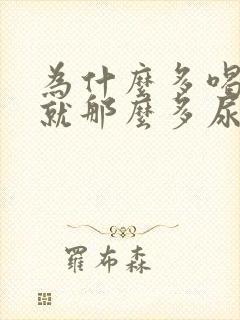 為什麼多喝
就那麼多尿
羅布森